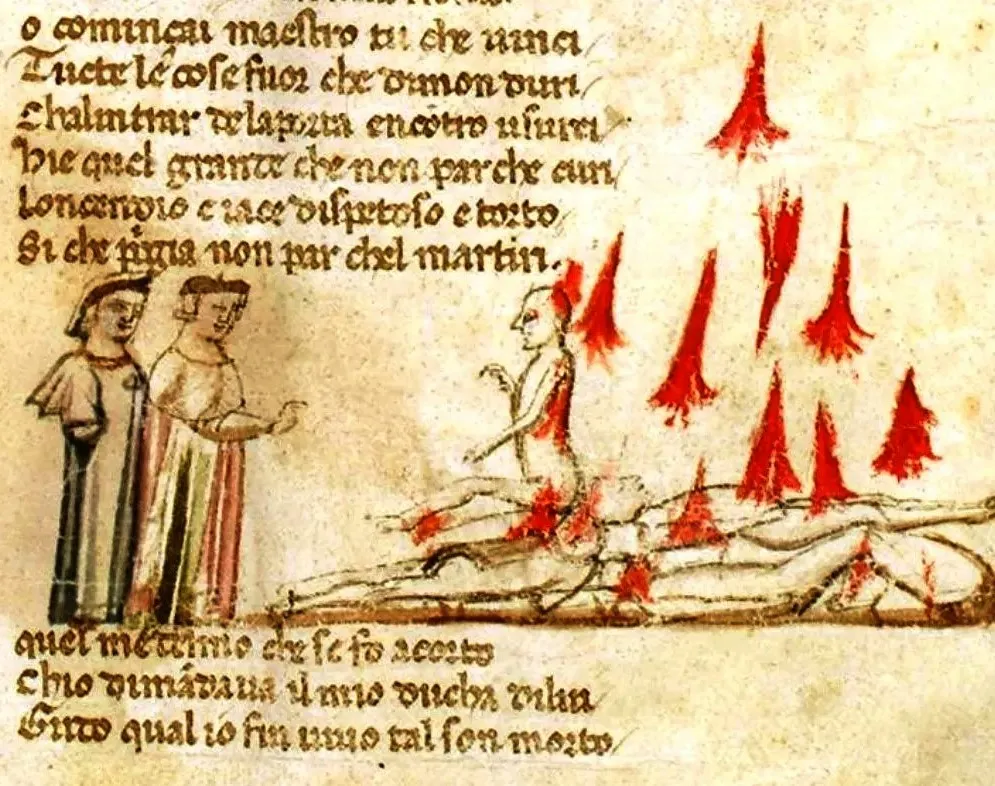 o comincai maestro tu che uinci
Tucte le cose fuor che dimon duri
Chalintrar dela porta encōtro
Chie quel grande che non par che curi
Loncendio e iace dispetoso e torto
Si che non par chel martiri.
quel che se fo acorto
Chio dimādaua il mio ducha dilui
Grido qual io fui uiuo tal son morto